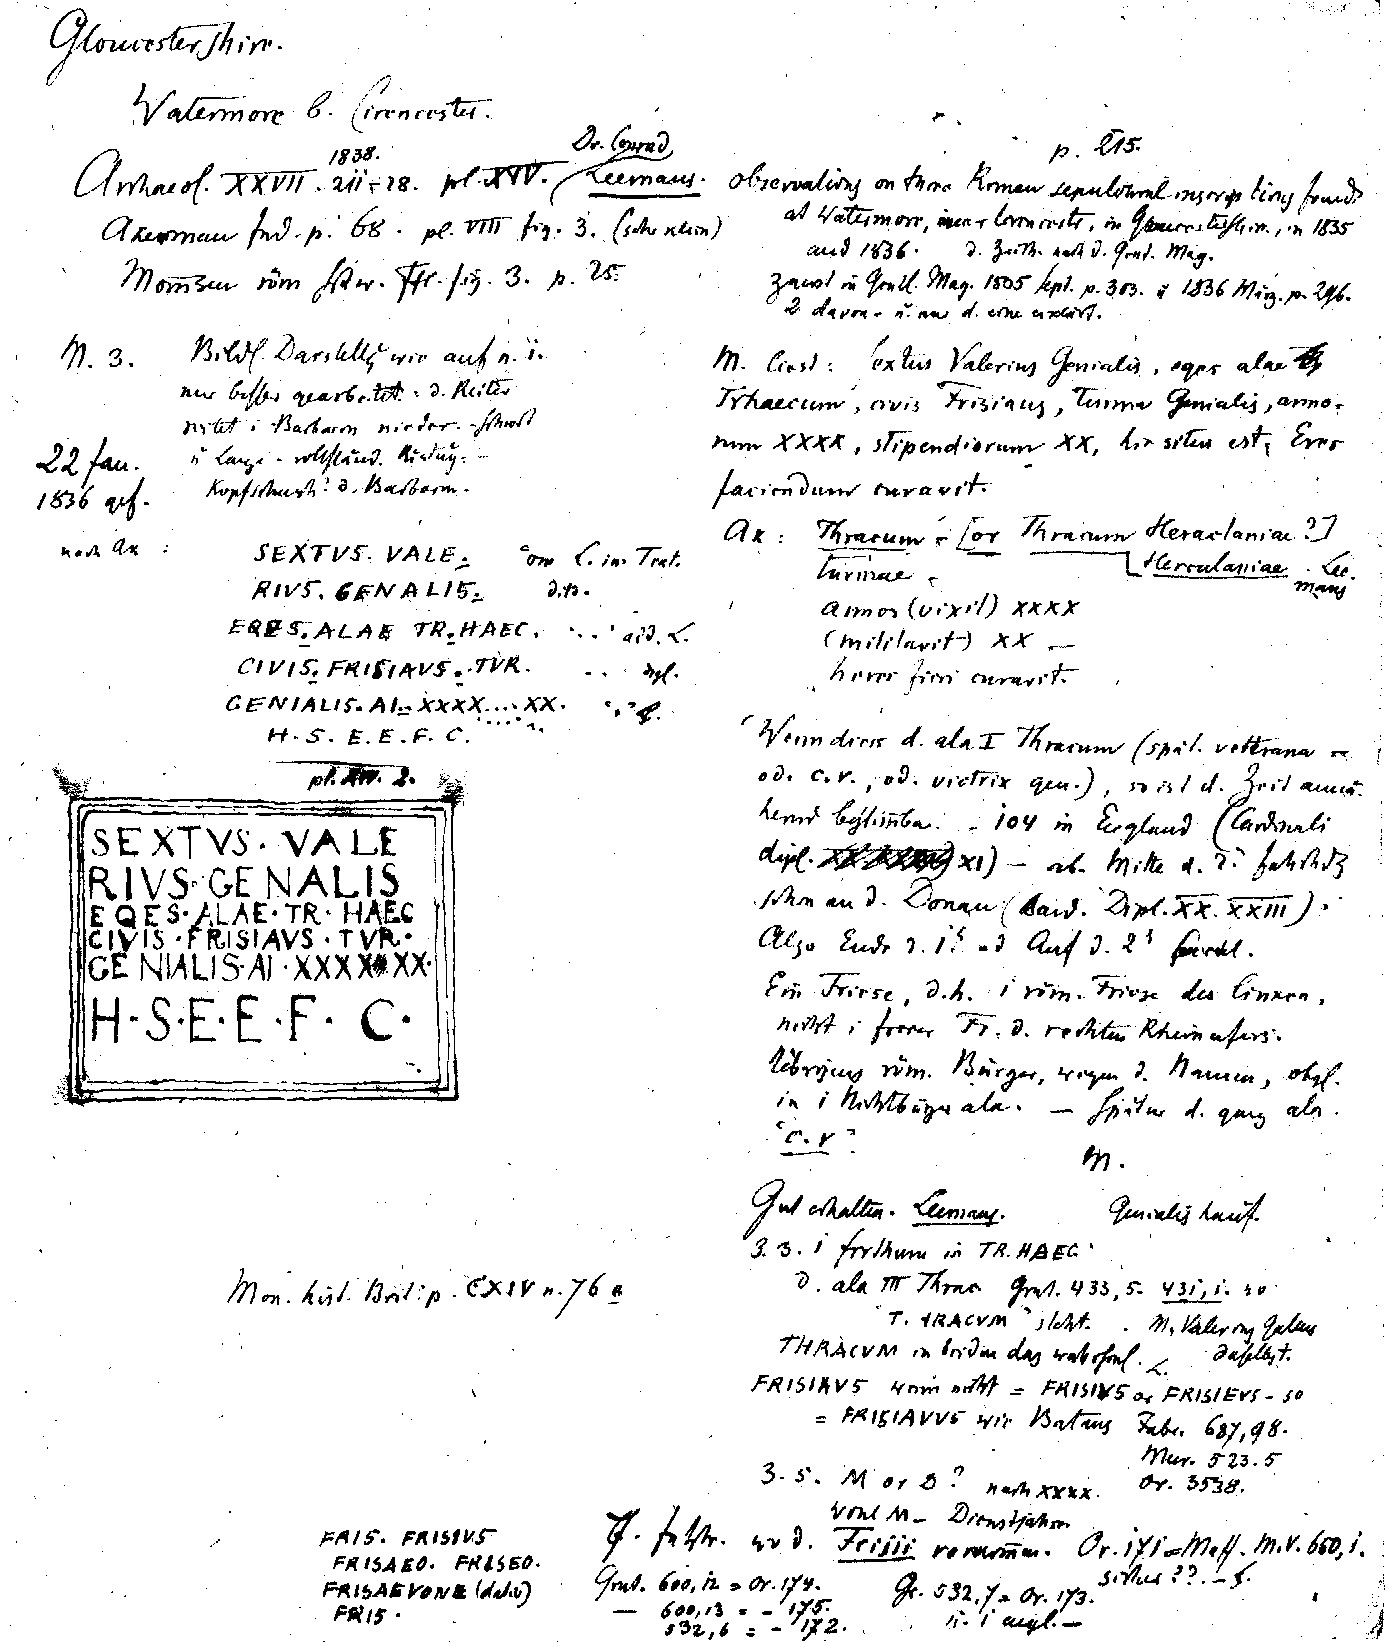 Gloucestershire.
Watermore b. Cirencester.
1838.
Dr. Conrad
Archaeol. XXVII. 211-28. pl. XIV. Leemans.
Akerman Ind. p. 68. pl. VIII fig. 3.
Mommsen röm. fig. 3. p. 25.
N. 3. Bildl. Darstellg wie auf n. 1.
nur besser gearbeitet: d. Reiter
i Barbaren nieder.
22 Jan.
u Lanze - vollständ.
1836 gef.
d. Barbaren.
nach Ak :
SEXTVS. VALE. om L. im Text.
RIVS. GENALIS. dto.
EQES. ALAE TR. HAEC. add. L.
CIVIS. FRISIAVS. TVR.
GENIALIS. AI. XXXX....XX.
H. S. E. E. F. C.
pl. XIV. 2.
SEXTVS · VALE
RIVS · GENALIS
EQES · ALAE · TR · HAEC
CIVIS · FRISIAVS · TVR ·
GENIALIS · AI · XXXX XX ·
H · S · E · E · F · C ·
Mon. hist. Brit. p. CXIV n. 76 a
FRIS. FRISIVS
FRISAEO. FRISEO.
FRISAEVONE (dativ)
FRIS.
p. 215.
Observations on three Roman sepulchral inscriptions found
at Watermore, near Cirencester, in Gloucestershire, in 1835
and 1836. d. Zeichn. nach d. Gent. Mag.
zuerst in Gentl. Mag. 1835 Sept. p. 303. u 1836 März. p. 296.
2 davon - u. nur d. eine erklärt.
M. liest: Sextus Valerius Genialis, eques alae
Trhaecum, civis Frisiaus, turma Genialis, anno-
rum XXXX, stipendiorum XX, hic situs est, Eres
faciendum curavit.
Ak: Thracum - [or Thracum Heraclaniae?]
Herculaniae. Lee-
mans
turmae -
annos (vixit) XXXX
(militavit) XX —
heres fieri curavit.
Wenn dies d. ala I Thracum (spät. vetterana
od. c. r., od. victrix gen.), so ist d. Zeit annä-
hernd bestimmbar. - 104 in England (Cardinali
dipl. XI) - ab. Mitte d. 2. Jahrhdt
schon an d. Donau (Card. Dipl. XX. XXIII).
Also Ende d. 1t od Anf d. 2t
Ein Friese, d.h. i röm. Friese des linken,
nicht i freier Fr. d. rechten Rheinufers.
Übrigens röm. Bürger, wegen d. Namen, obgl.
in i Nichtbürger ala. — Später d. ganz ala
"C. R"
M.
Gut erhalten. Leemans. Genialis häuf.
Z. 3. i Irrthum in TR. HAEC
d. ala III Thrac. Grut. 433, 5. 431, 1. so
T. TRACVM steht. M. Valerius
daselbst.
THRACVM in beiden das wahrschl. L.
FRISIAVS wenn nicht = FRISIVS or FRISIEVS - so
= FRISIAVVS wie Bataus Fabr. 687, 98.
Mur. 523. 5
Or. 3538.
Z. 5. M or D? nach XXXX.
wohl M - Dienstjahren
Jahr. wo d. Frisii vorkommen. Or. 171 = Maff. M.V. 660, 1.
Grut. 600, 12 = Or. 174. Gr. 532, 7 = Or. 173.
— 600, 13 = - 175.
532, 6 = - 172.